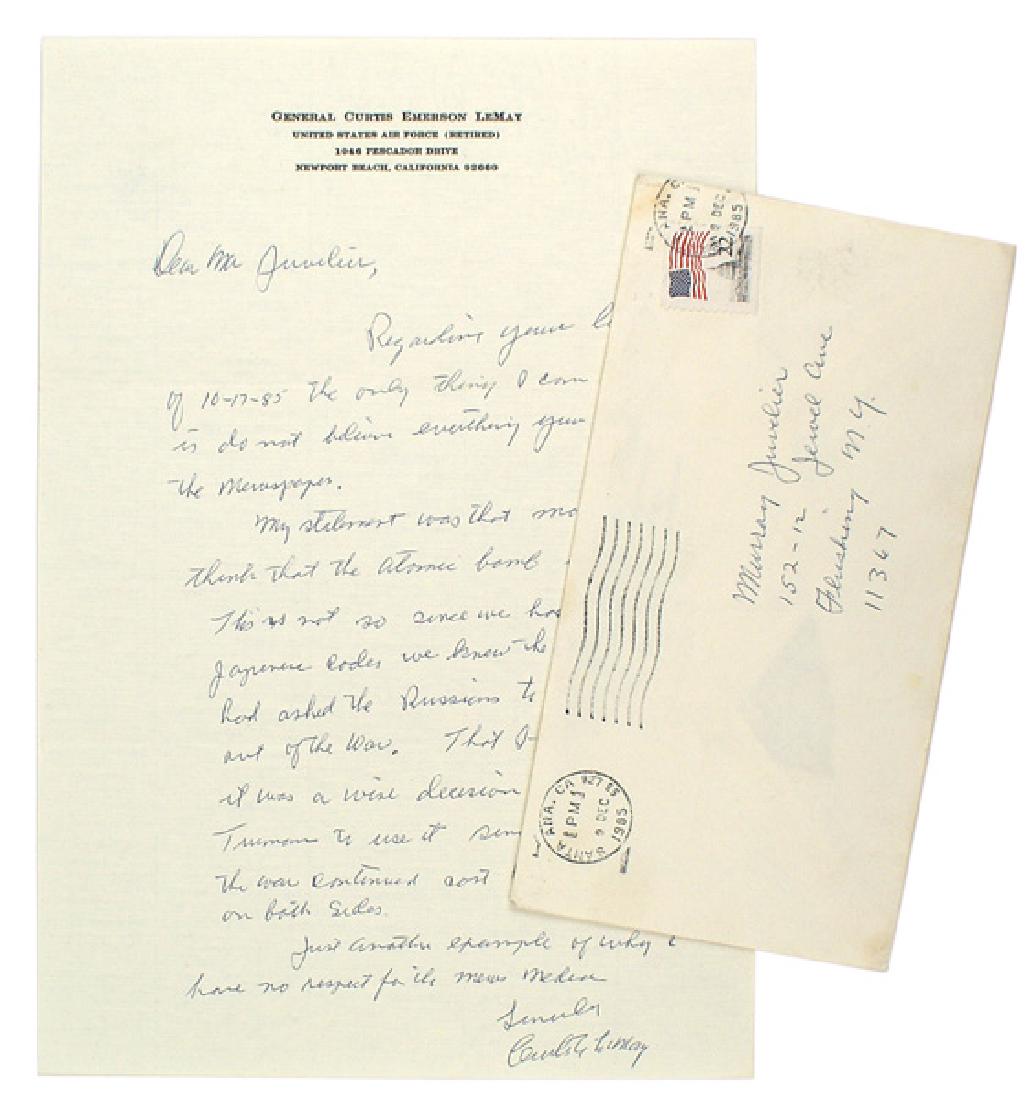 GENERAL CURTIS EMERSON LEMAY
UNITED STATES AIR FORCE (RETIRED)
1046 PESCADOR DRIVE
NEWPORT BEACH, CALIFORNIA 92660
Dear Mr Juvelier,
Regarding your
of 10-17-85 the only thing I can
is do not believe everthing you
the Newspaper.
My statement was that
think that the Atomic bomb
This is not so since we had
Japanese codes we knew the
had asked the Russians to
out of the War. That
it was a wise decision
Truman to use it
the war continued cost
on both sides.
Just another example of why I
have no respect for the news media
Sincerely
Curtis LeMay
PM
DEC
1985
22
Murray Juvelier
152-12 Jewel Ave
Flushing N.Y.
11367
SANTA ANA, CA 927
PM
9 DEC
1985